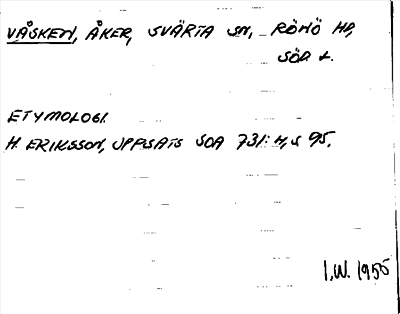 VÅSKEN, ÅKER, SVÄRTA SN, RÖNÖ HD,
SÖD L.
ETYMOLOGI.
H. ERIKSSON, UPPSATS SOA 731:4, S 95.
I.W. 1955